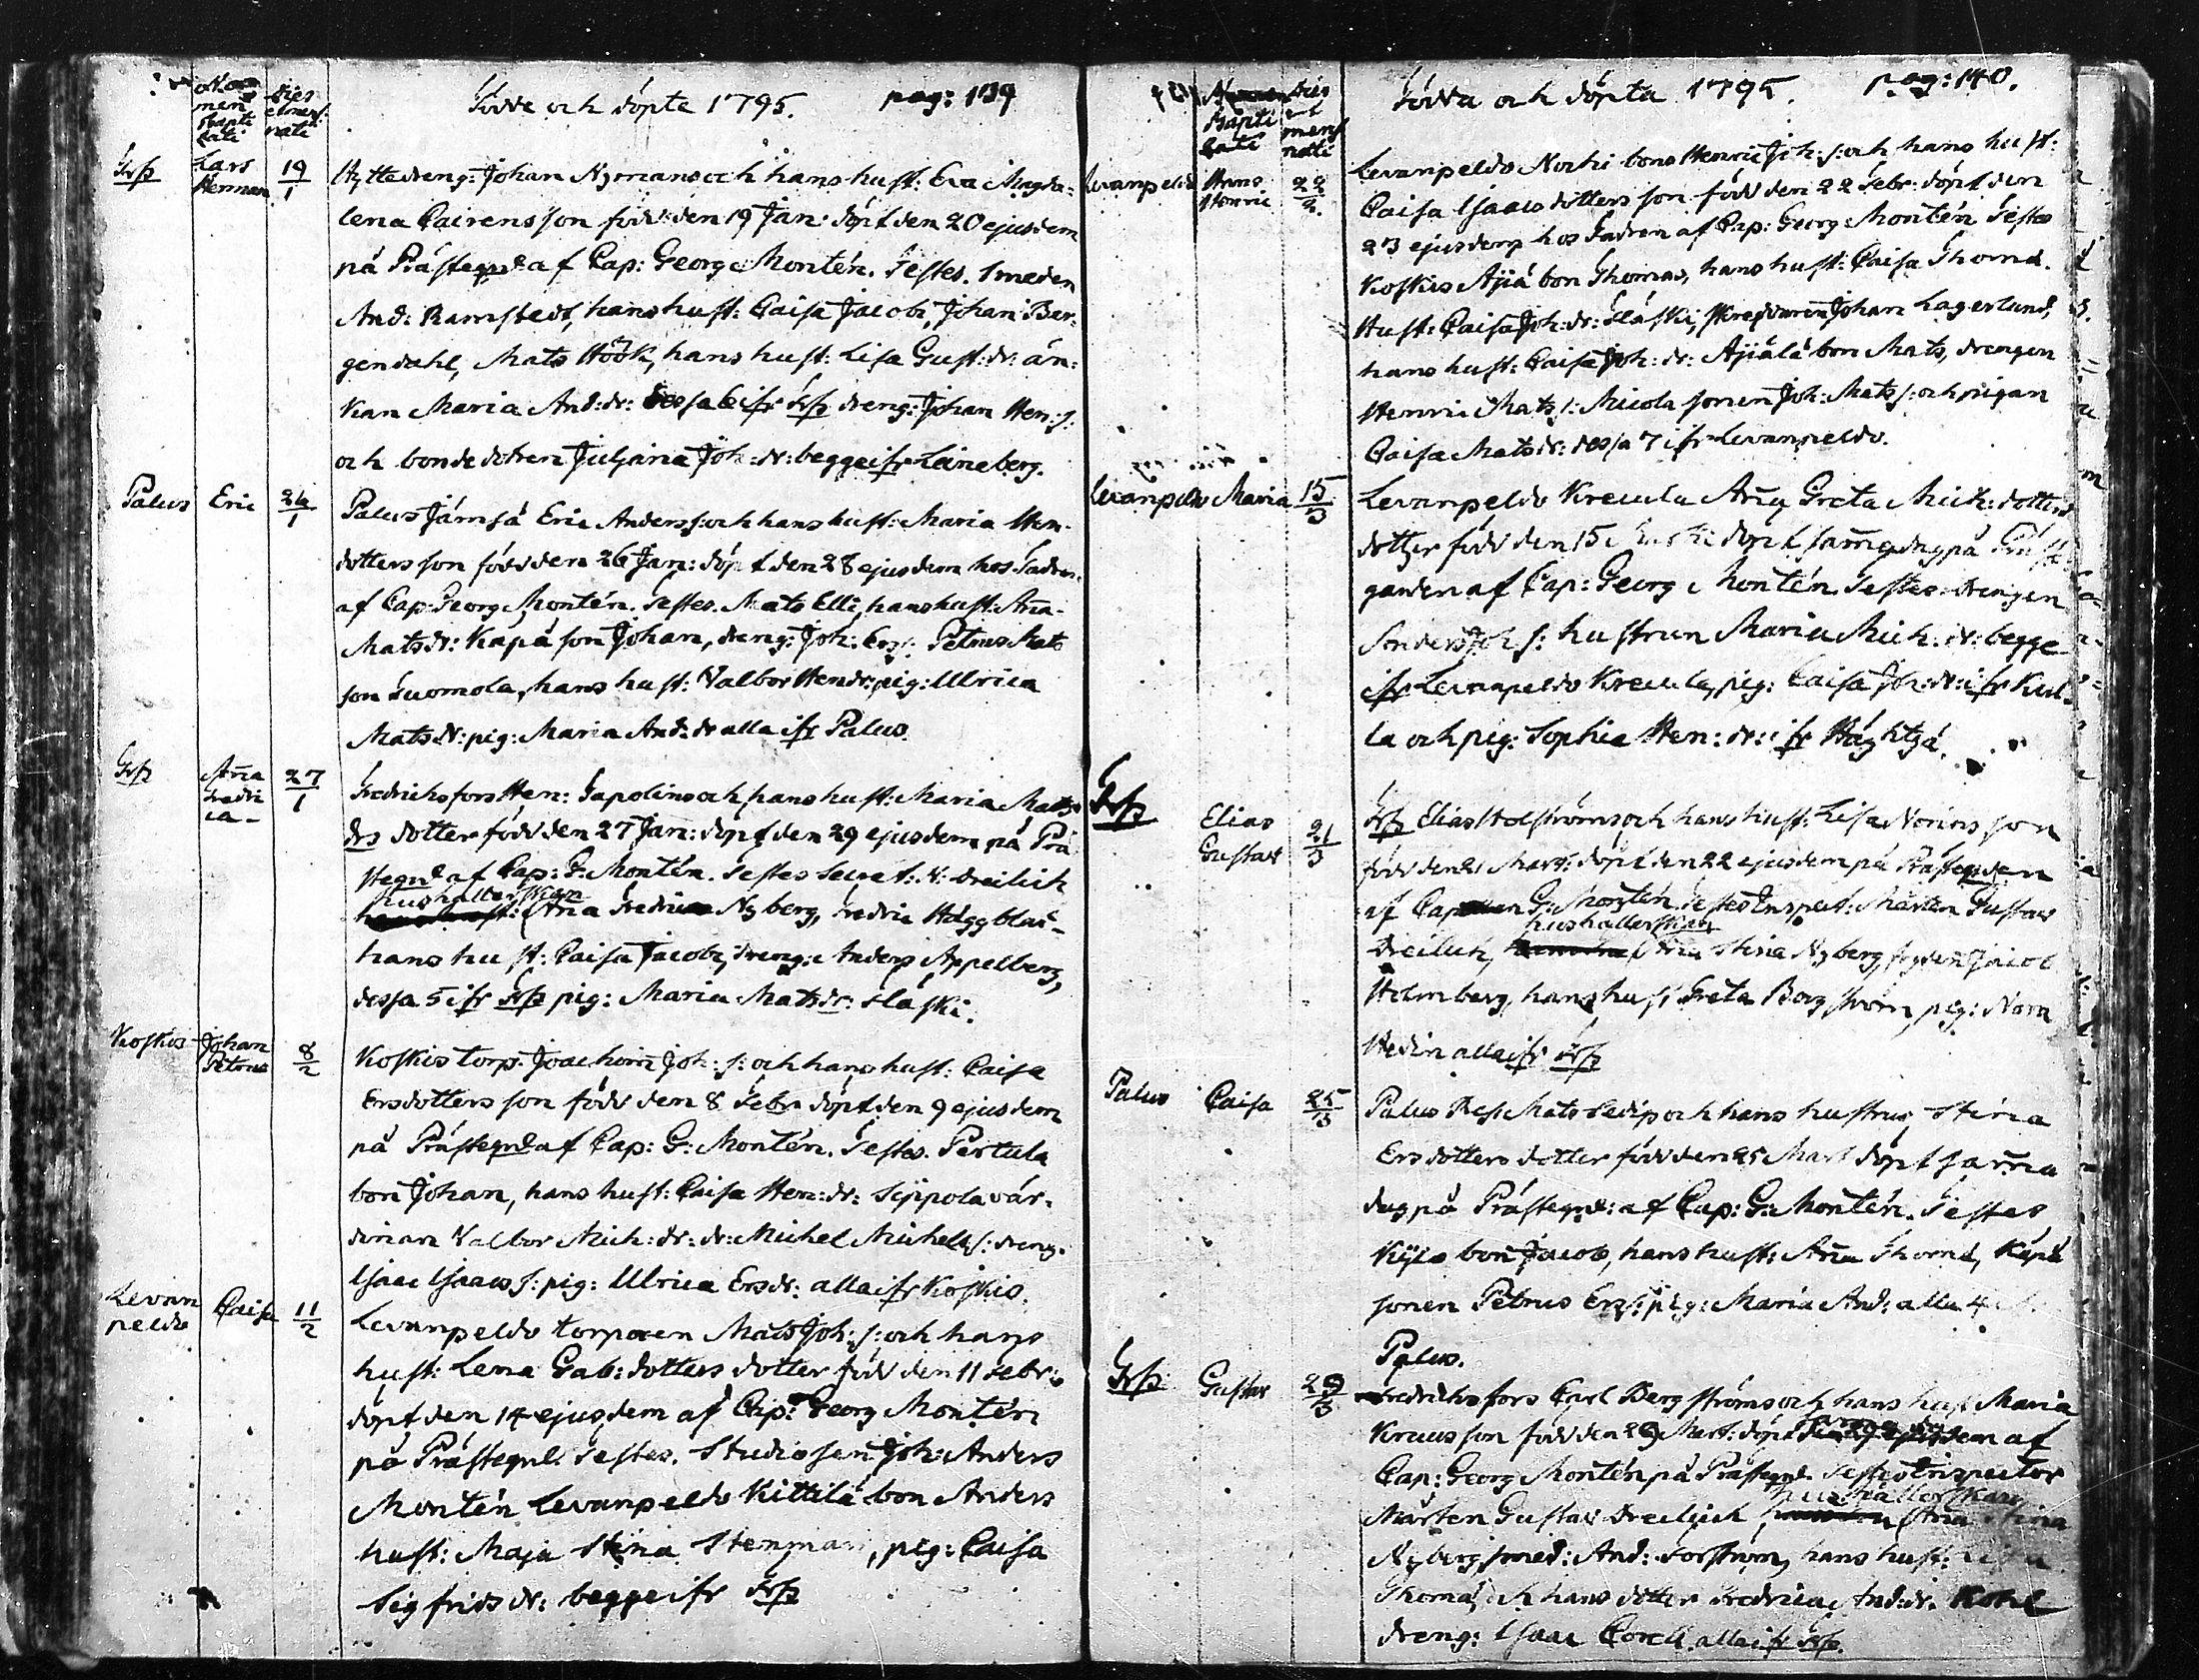 Födde och döpte 1795. pag: 139
Nomen baptizati
dies et mens: nati
Frs Lars Herman 19/1
Hyttedreng: Johan Nymans och hans hust: Eva Magda-
lena Cairens son född den 19 Jan: döpt den 20 ejusdem
på Prästegd af Cap: Georg Montén. Testes. Smeden
And: Ramstedt, hans hust: Caisa Jacobi, Johan Ber-
gendahl, Mats Höök, hans hust: Lisa Gust: dr: än-
kan Maria And: dr: dessa 6 ifr Frs dreng: Johan Hen: s:
och bonde dotren Juliana Joh: dr: begge ifr Leineberg.
Palus Eric 26/1
Palus Jämsä Eric Anders: s: och hans hust: Maria Hen-
dotters son född den 26 Jan: döpt den 28 ejusdem hos Fadren
af Cap: Georg Montén. Testes. Mats Elli, hans hust: Aña
Mats dr: Kapä son Johan, dreng: Joh: Ers s: Petrus Mats
son Suomola, hans hust: Valbor Hendr: pig: Ulrica
Mats dr: pig: Maria And: dr alla ifr Palus.
Frs Aña Fredrica 27/1
Fredrichsfors Hen: Sapolins och hans hust: Maria Mats
drs dotter född den 27 Jan: döpt den 29 ejusdem på Prä
stegd af Cap: G: Montén. Testes Secret: N: Dreilich
hushållerskan
Aña Fredrica Nyberg, Fredric Häggblad
hans hust: Caisa Jacobi, dreng: Anders Appelberg,
dessa 5 ifr Frs pig: Maria Mats dr: Släski.
Koskis Johan Petrus 8/2
Koskis torp: Joachim Joh: s: och hans hust: Caisa
Ersdotters son född den 8 Febr döpt den 9 ejusdem
på Prästegd af Cap: G: Montén. Testes. Pertula
bon Johan, hans hust: Caisa Hen: dr: Seppola vär-
dinnan Valbor Mich: dr: dr: Michel Michels s: dreng
Isaac Isaacs s: pig: Ulrica Ers dr: alla ifr Koskis.
Levanpeldo Caisa 11/2
Levanpeldo torparen Mats Joh: s: och hans
hust: Lena Gab: dotters dotter född den 11 Febr:
döpt den 14 ejusdem af Cap: Georg Montén
på Prästegd. Testes. Studiosen Joh: Anders
Montén Levanpeldo Kittilä bon Anders
hust: Maja Stina Stenman, pig: Caisa
Sigfrids dr: begge ifr Frs
Födda och döpta 1795. pag: 140.
Nomen Baptizati
dies et mens nati
Levanpeldo Hans Henric 22/2
Levanpeldo Nochi bons Henric Joh: s: och hans hust:
Caisa Isaacs dotters son född den 22 Febr: döpt den
23 ejusdem hos Fadren af Cap: Georg Montén. Testes
Koskis Äjiä bon Thomas, hans hust: Caisa Thomd.
Hust: Caisa Joh: dr: Släski, skreddaren Johan Lagerlund,
hans hust: Caisa Joh: dr: Äjiälä bon Mats, drengen
Henric Mats s: Micola sonen Joh: Mats s: och pigan
Caisa Mats dr: dessa 7 ifr Levanpeldo.
Levanpeldo Maria 15/3
Levanpeldo Krecula Aña Greta Mich: dotters
dotter född den 15 döpt samma dag på Präste
garden af Cap: Georg Montén. Testes drengen
Anders Joh s: hustrun Maria Mich: dr: begge
ifr Levanpeldo Krecula, pig: Caisa Joh: dr: ifr Kul-
la och pig: Sophia Hen: dr: ifr
Frs Elias Gustav 21/3
Frs Elias Holströms och hans hust: Lisa Norins son
född den 21 Mart: döpt den 22 ejusdem på Prästegden
af Cap G: Montén. Testes Inspect: Mårten Gustav
hushållerskan
Dreilich, Aña Stina Nyberg, Jacob
Holmberg, hans hust Greta Borgström, pig: Nora
Hedin alla ifr Frs
Palus Caisa 25/3
Palus Mats Sedips och hans hustrus Stina
Ersdotters dotter född den 25 Mart döpt samma
dag på Prästegd: af Cap: G: Montén. Testes
Kylä bon Jacob, hans hust: Aña Thomd, Kapä
sonen Petrus Ers s: pig: Maria And: alla 4
Palus.
Frs Gustav 29/3
Fredrichsfors Carl Bergströms och hans hust Maria
Kraus son född den 29 Mart: döpt af
Cap: Georg Montén på Prästegd. Testes Inspector
hushållerskan
Mårten Gustav Dreilich, Aña Stina
Nyberg, smed: And: Forsström, hans hust: Lisa
Thomd, och hans dotter Fredrica And: dr. Kohl
dreng: Isaac Corell. alla ifr Frs.